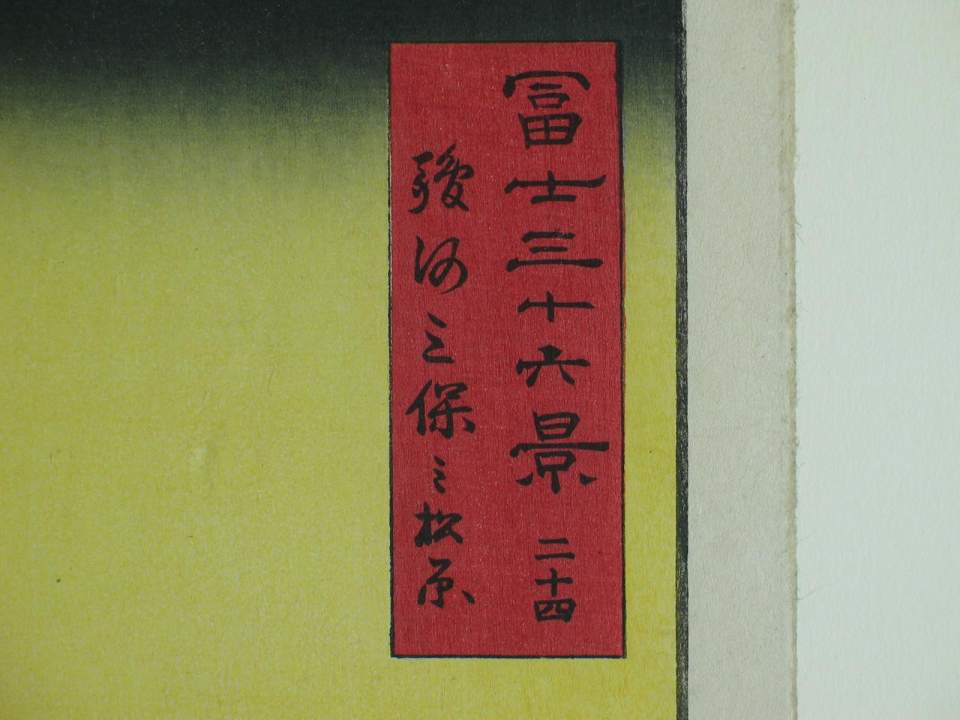 冨士三十六景 二十四
駿河三保之松原